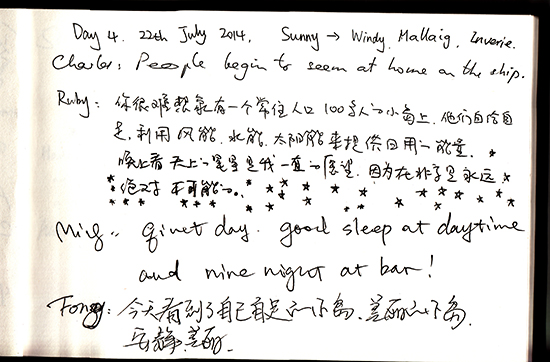 Day 4. 22th July 2014. Sunny → Windy. Mallaig. Inverie.
Charles: People begin to seem at home on the ship.
Ruby: 你很难想象有一个常住人口100多人的小岛上,他们自给自
足,利用风能.水能.太阳能来提供日用的能量.
晚上看天上的星星是我一直的愿望,因为在北京是永远
绝对不可能的..
Ming: qinet day. good sleep at daytime
and nine night at bar!
Fong: 今天看到了自己自足的小岛.美丽的小岛.
安静.美丽.